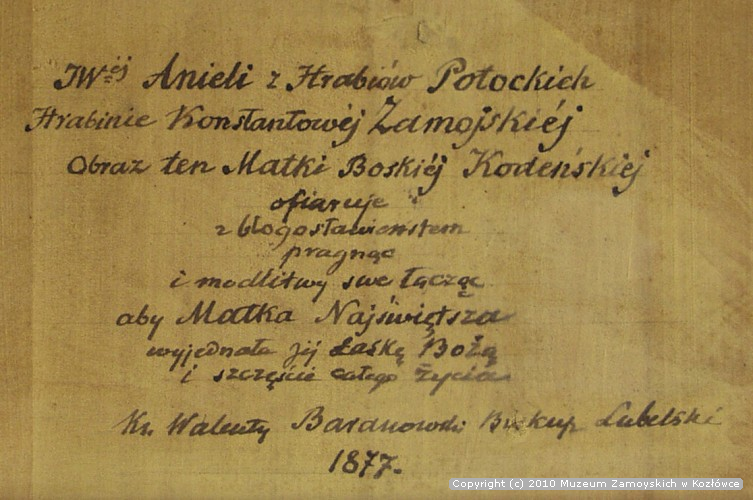 JWéj Anieli z Hrabiów Potockich
Hrabinie Konstantowéj Zamojskiéj
Obraz ten Matki Boskiéj Kodeńskiej
ofiaruje
z błogosławieństem
pragnąc
i modlitwy swe łącząc
aby Matka Najświętsza
wyjednała jéj Łaskę Bożą
i szczęście całego życia
Ks. Walenty Baranowski Biskup Lubelski
1877.
Copyright (c) 2010 Muzeum Zamoyskich w Kozłówce